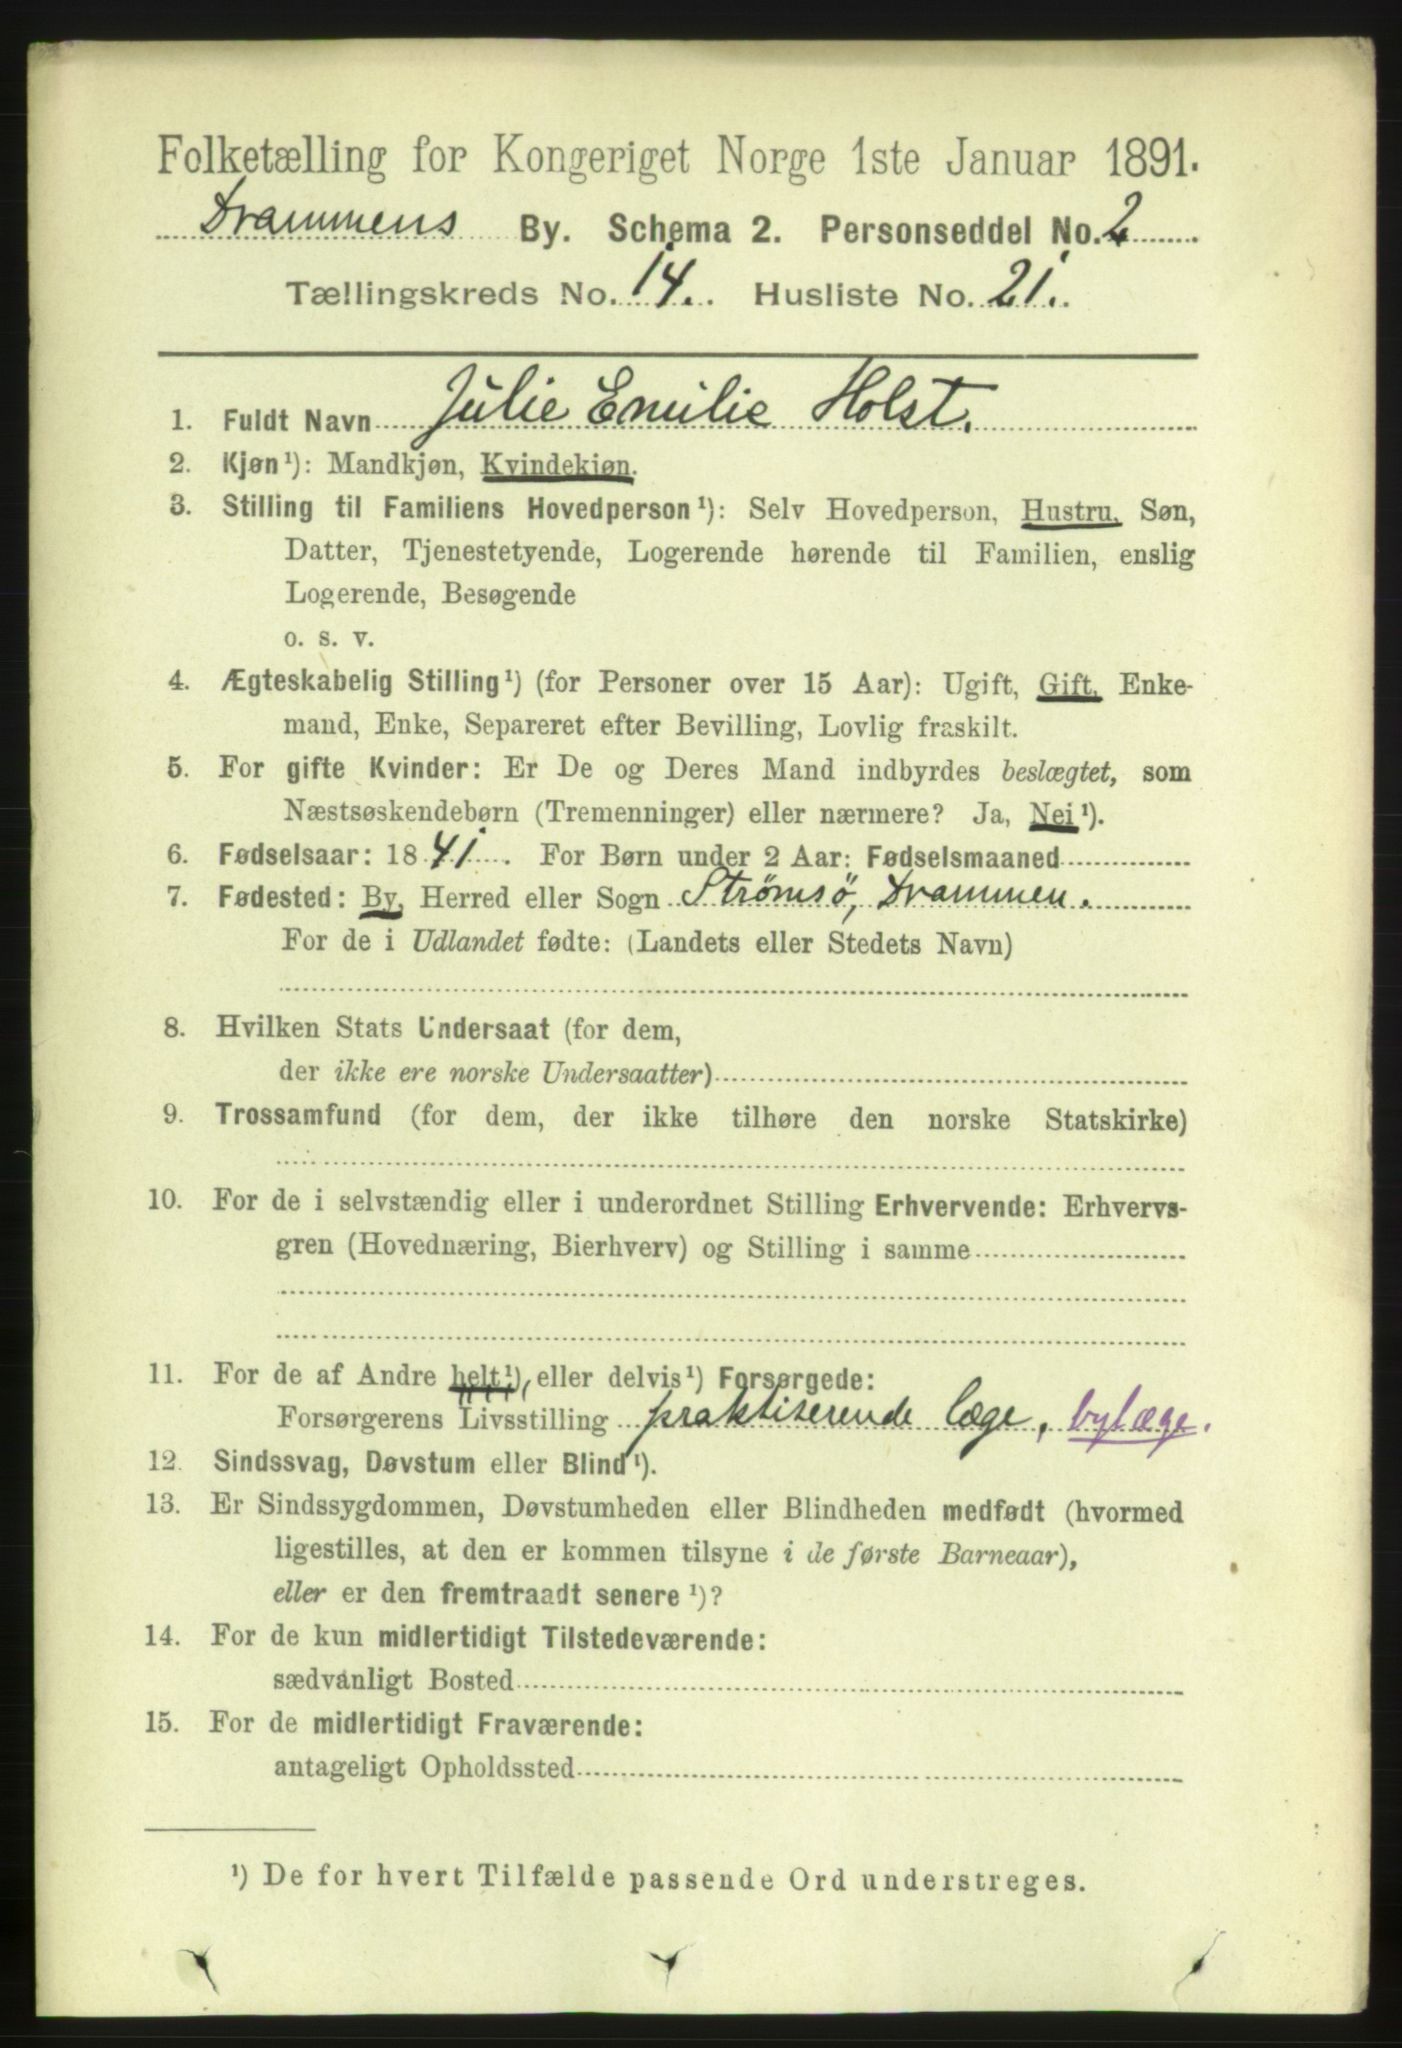 Folketælling for Kongeriget Norge 1ste Januar 1891.
Drammens By. Schema 2. Personseddel No. 2
Tællingskreds No. 14. Husliste No. 21.
1. Fuldt Navn Julie Emilie Holst.
2. Kjøn¹): Mandkjøn, Kvindekjøn.
3. Stilling til Familiens Hovedperson¹): Selv Hovedperson, Hustru, Søn,
Datter, Tjenestetyende, Logerende hørende til Familien, enslig
Logerende, Besøgende
o. s. v.
4. Ægteskabelig Stilling¹) (for Personer over 15 Aar): Ugift, Gift, Enke-
mand, Enke, Separeret efter Bevilling, Lovlig fraskilt.
5. For gifte Kvinder: Er De og Deres Mand indbyrdes beslægtet, som
Næstsøskendebørn (Tremenninger) eller nærmere? Ja, Nei¹).
6. Fødselsaar: 1841. For Børn under 2 Aar: Fødselsmaaned
7. Fødested: By, Herred eller Sogn Strömsö, Drammen.
For de i Udlandet fødte: (Landets eller Stedets Navn)
8. Hvilken Stats Undersaat (for dem,
der ikke ere norske Undersaatter)
9. Trossamfund (for dem, der ikke tilhøre den norske Statskirke)
10. For de i selvstændig eller i underordnet Stilling Erhvervende: Erhvervs-
gren (Hovednæring, Bierhverv) og Stilling i samme
11. For de af Andre helt¹), eller delvis¹) Forsørgede:
Forsørgerens Livsstilling praktiserende læge, bylæge.
12. Sindssvag, Døvstum eller Blind¹).
13. Er Sindssygdommen, Døvstumheden eller Blindheden medfødt (hvormed
ligestilles, at den er kommen tilsyne i de første Barneaar),
eller er den fremtraadt senere¹)?
14. For de kun midlertidigt Tilstedeværende:
sædvanligt Bosted
15. For de midlertidigt Fraværende:
antageligt Opholdssted
¹) De for hvert Tilfælde passende Ord understreges.